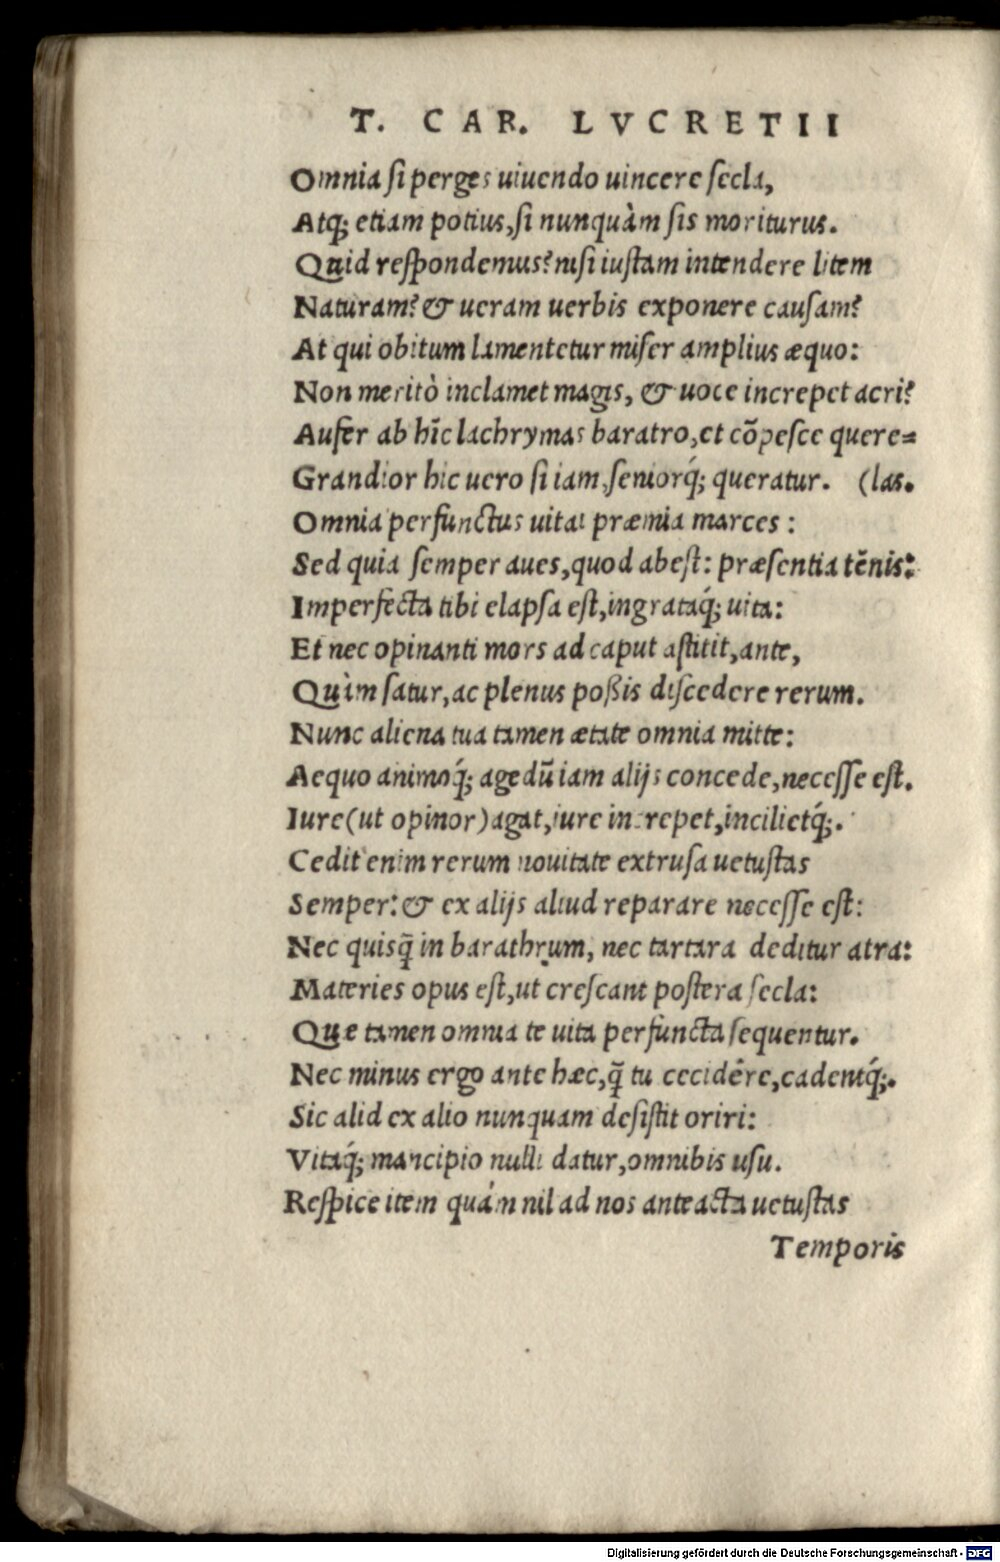 T. CAR. LVCRETII
Omnia si perges uiuendo uincere secla,
Atq; etiam potius, si nunquàm sis moriturus.
Quid respondemus? nisi iustam intendere litem
Naturam? & ueram uerbis exponere causam?
At qui obitum lamentetur miser amplius æquo:
Non meritò inclamet magis, & uoce increpet acri?
Aufer ab hīc lachrymas baratro, et cōpesce quere=
Grandior hic uero si iam, seniorq́; queratur. (las.
Omnia perfunctus uitai præmia marces:
Sed quia semper aues, quod abest: præsentia tēnis:
Imperfecta tibi elapsa est, ingrataq́; uita:
Et nec opinanti mors ad caput astitit, ante,
Quàm satur, ac plenus poßis discedere rerum.
Nunc aliena tua tamen ætate omnia mitte:
Aequo animoq́; agedū iam alijs concede, necesse est.
Iure (ut opinor) agat, iure increpet, incilietq́;.
Cedit enim rerum nouitate extrusa uetustas
Semper: & ex alijs aliud reparare necesse est:
Nec quisq̄ in barathrum, nec tartara deditur atra:
Materies opus est, ut crescant postera secla:
Que tamen omnia te uita perfuncta sequentur.
Nec minus ergo ante hæc, q̄ tu cecidêre, cadentq́;.
Sic alid ex alio nunquam desistit oriri:
Vitaq́; mancipio nulli datur, omnibis usu.
Respice item quám nil ad nos anteacta uetustas
Temporis
Digitalisierung gefördert durch die Deutsche Forschungsgemeinschaft - DFG